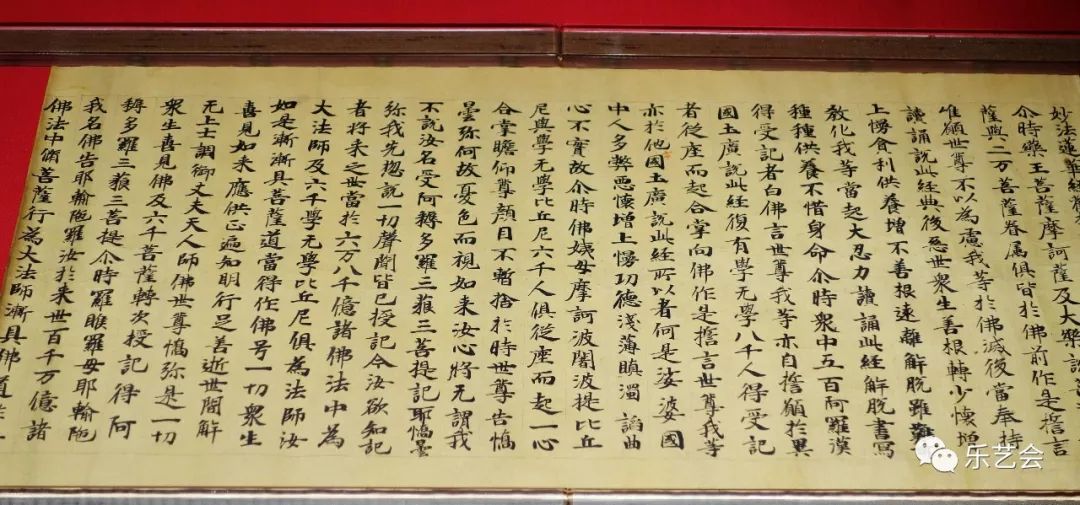 妙法蓮華經
尒時藥王菩薩摩訶薩及大樂說
薩與二万菩薩眷属俱皆於佛前作是擔言
唯願世尊不以為慮我等於佛滅後當奉持
讀誦說此經典後惡世衆生善根轉少懷增
上慢貪利供養增不善根遠離解脫雖難
教化我等當起大忍力讀誦此經解脫書寫
種種供養不惜身命尒時衆中五百阿羅漢
得受記者白佛言世尊我等亦自擔願於異
國土廣說此經復有學无學八千人得受記
者從座而起合掌向佛作是擔言世尊我等
亦於他國土廣說此經所以者何是娑婆國
中人多弊惡懷增上慢功德淺薄瞋濁諂曲
心不實故尒時佛姨母摩訶波闍波提比丘
尼與學无學比丘尼六千人俱從座而起一心
合掌瞻仰尊顏目不暫捨於時世尊告憍
曇弥何故憂色而視如来汝心將无謂我
不說汝名受阿耨多羅三藐三菩提記耶憍曇
弥我先惣說一切聲聞皆已授記今汝欲知記
者將来之世當於六万八千億諸佛法中為
大法師及六千學无學比丘尼俱為法師汝
如是漸漸具菩薩道當得作佛号一切衆生
喜見如来應供正遍知明行足善逝世間解
无上士調御丈夫天人師佛世尊憍弥是一切
衆生喜見佛及六千菩薩轉次授記得阿
耨多羅三藐三菩提尒時羅睺羅母耶輸陁
我名佛告耶輸陁羅汝於来世百千万億諸
佛法中脩菩薩行為大法師漸具佛道
乐艺会